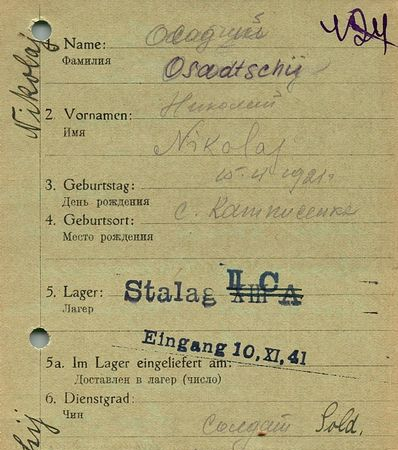 Nikolaj
1. Name: Осадчий
Фамилия Osadtschij
2. Vornamen: Николай
Имя Nikolaj
3. Geburtstag: 1921
День рождения
4. Geburtsort: с.
Место рождения
5. Lager: Stalag II C A
Лагер
Eingang 10. XI. 41
5a. Im Lager eingeliefert am:
Доставлен в лагер (число)
6. Dienstgrad:
Чин солдат Sold.